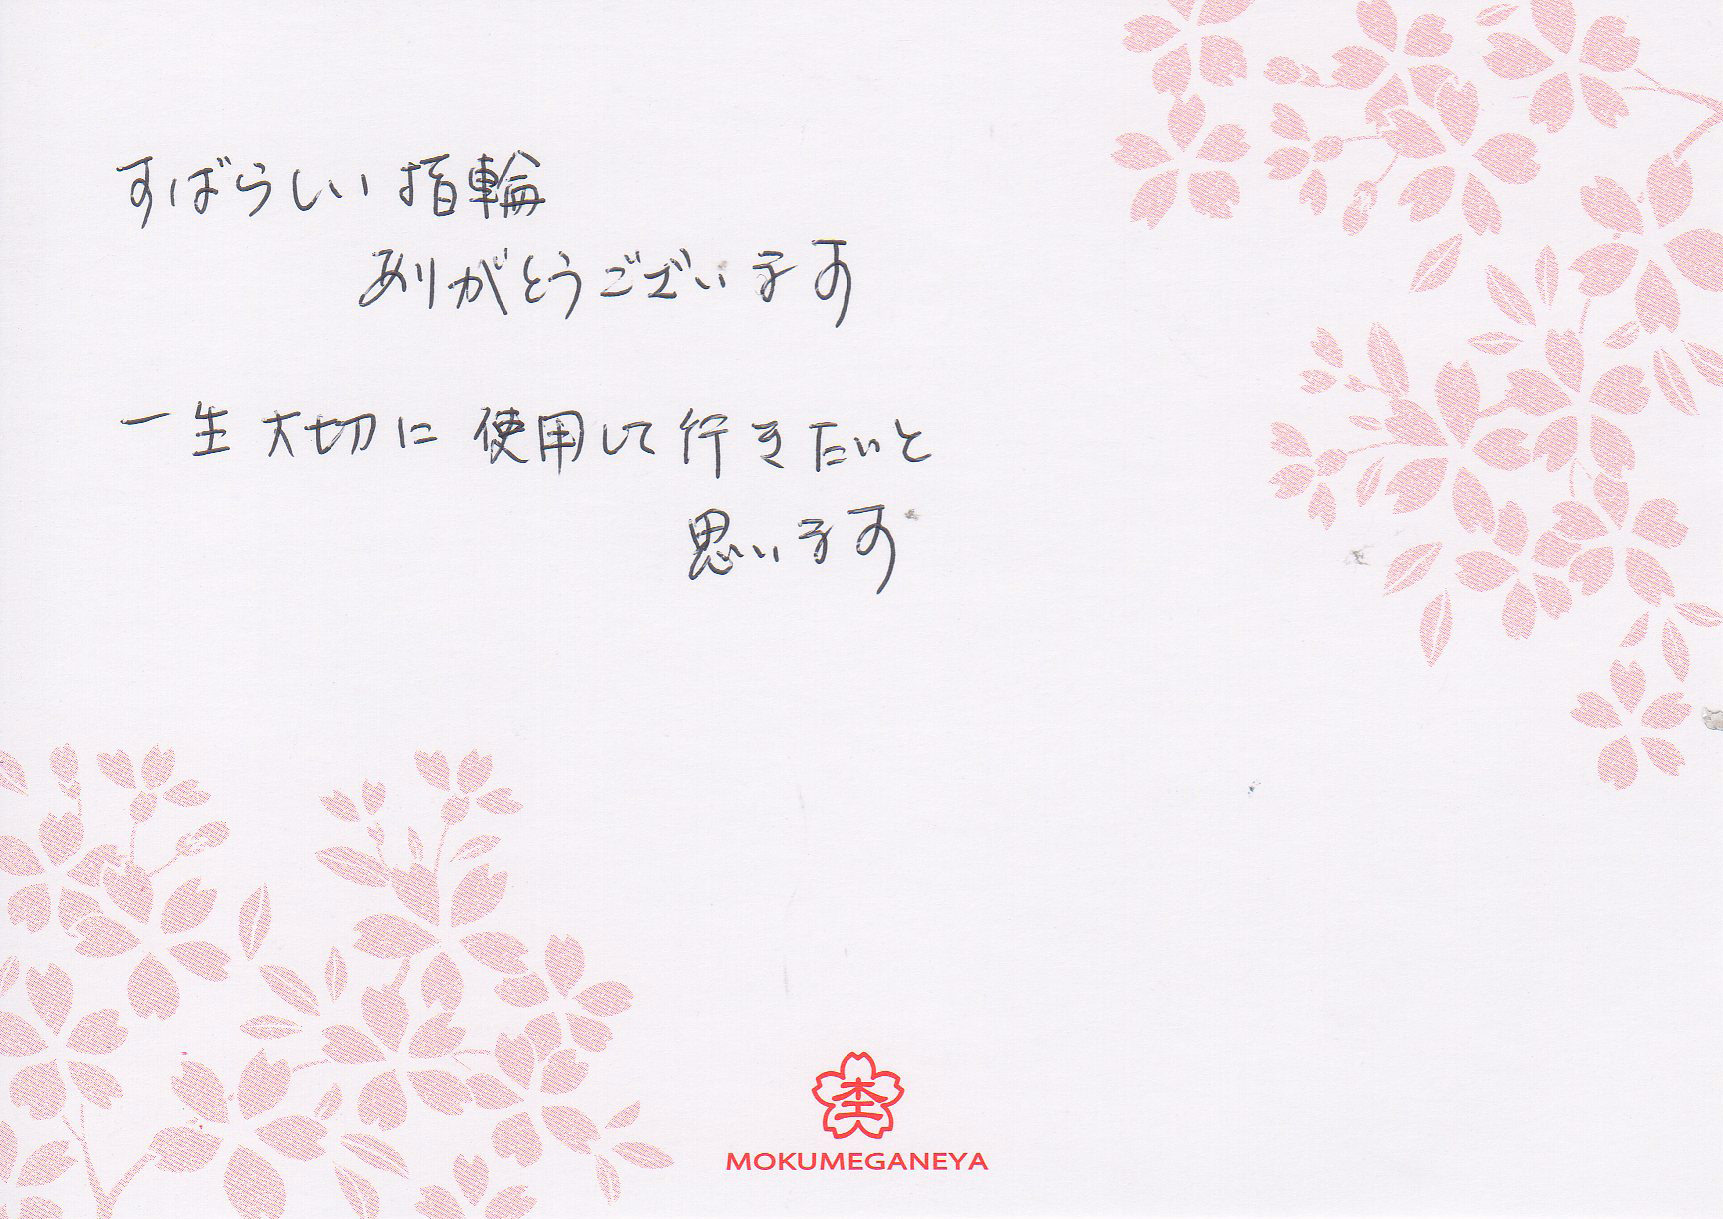 すばらしい指輪
ありがとうございます
一生大切に使用して行きたいと
思います
杢
MOKUMEGANEYA